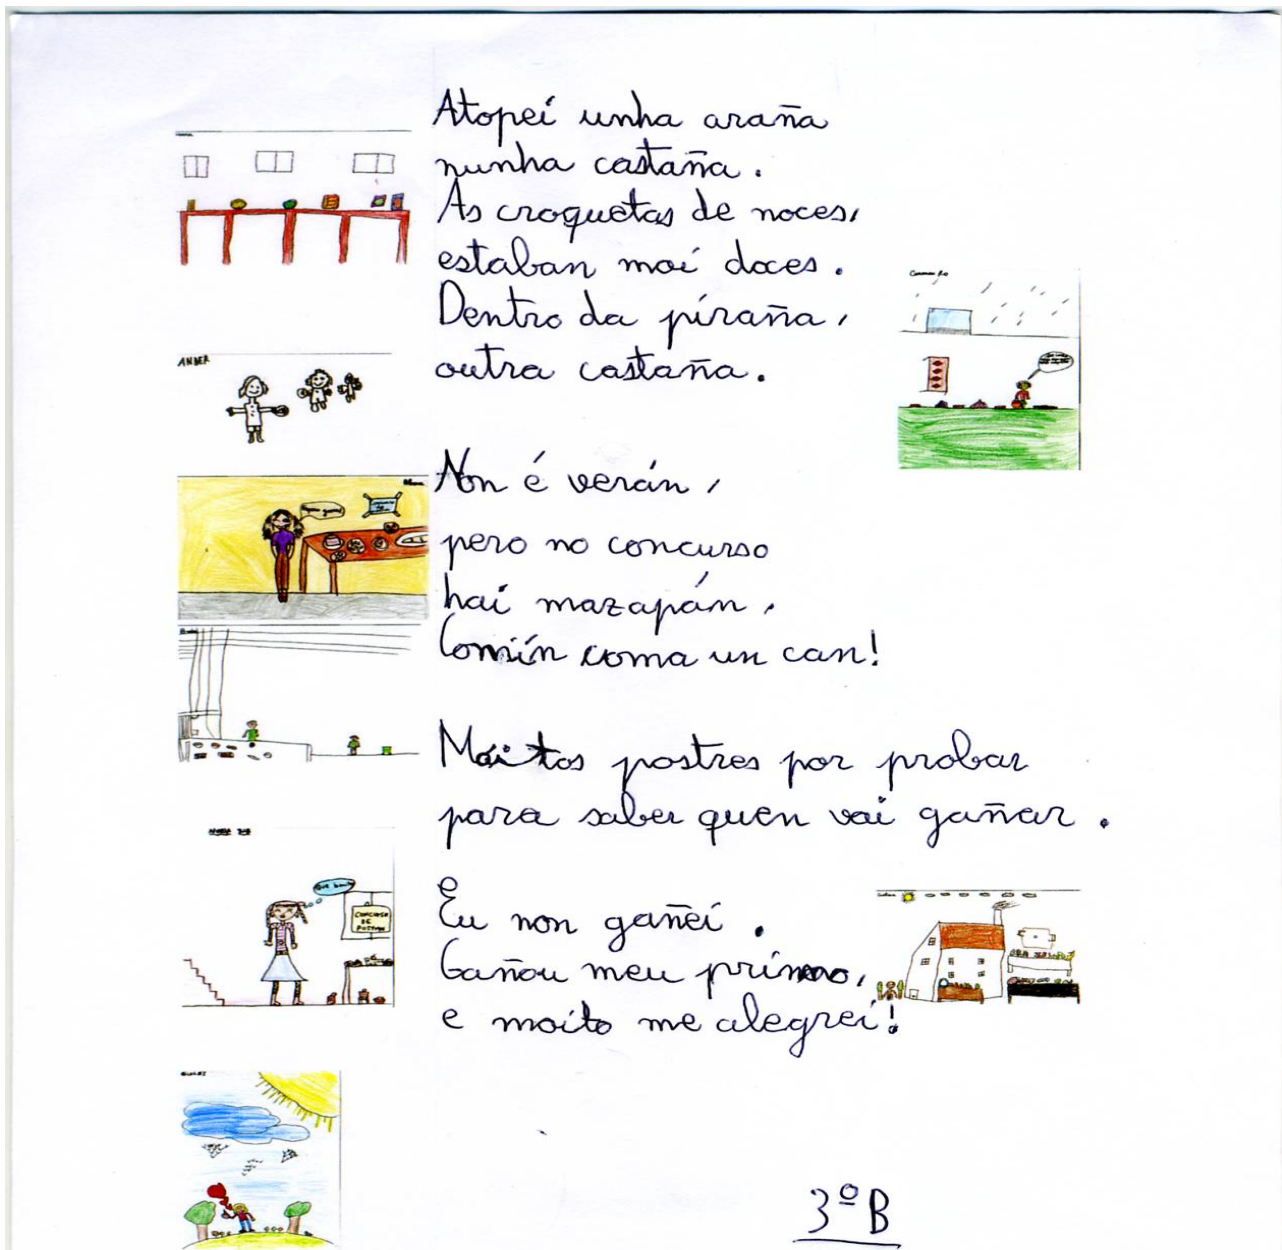 Atopei unha araña
nunha castaña.
As croquetas de noces,
estaban moi doces.
Dentro da piraña,
outra castaña.
ANDER
Non é verán,
pero no concurso
hai mazapán.
Comín coma un can!
Moitos postres por probar
para saber quen vai gañar.
CONCURSO
DE
POSTRES
Eu non gañei.
Gañou meu primo,
e moito me alegrei!
3º B